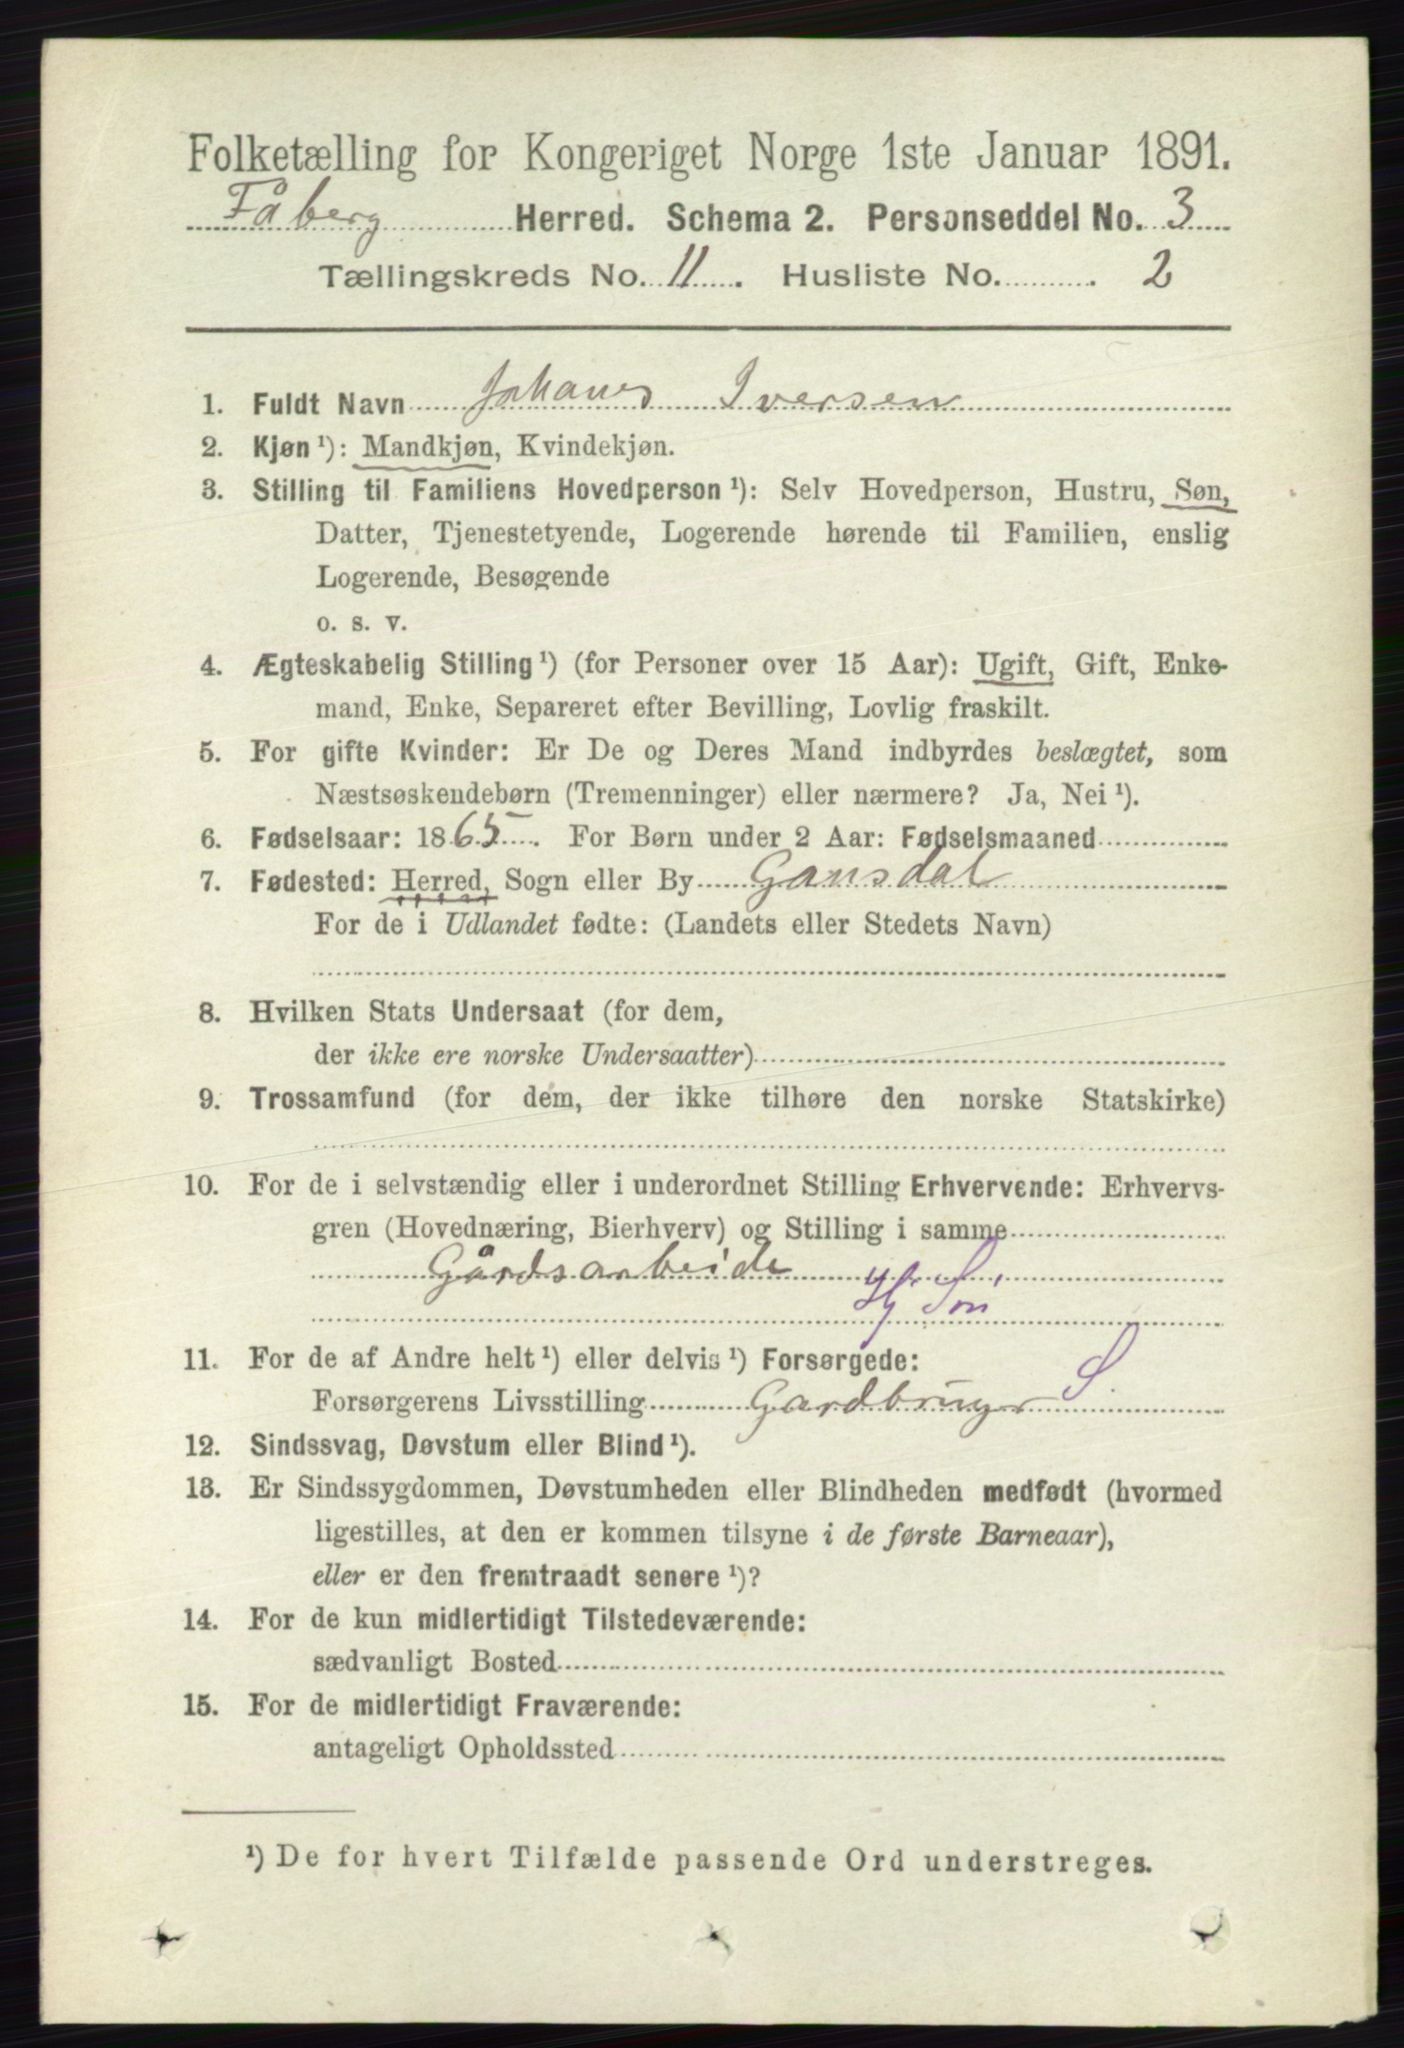 Folketælling for Kongeriget Norge 1ste Januar 1891.
Fåberg Herred. Schema 2. Personseddel No. 3
Tællingskreds No. 11. Husliste No. 2
1. Fuldt Navn Johanes Iversen
2. Kjøn ¹): Mandkjøn, Kvindekjøn.
3. Stilling til Familiens Hovedperson ¹): Selv Hovedperson, Hustru, Søn,
Datter, Tjenestetyende, Logerende hørende til Familien, enslig
Logerende, Besøgende
o. s. v.
4. Ægteskabelig Stilling ¹) (for Personer over 15 Aar): Ugift, Gift, Enke-
mand, Enke, Separeret efter Bevilling, Lovlig fraskilt.
5. For gifte Kvinder: Er De og Deres Mand indbyrdes beslægtet, som
Næstsøskendebørn (Tremenninger) eller nærmere? Ja, Nei ¹).
6. Fødselsaar: 1865. For Børn under 2 Aar: Fødselsmaaned
7. Fødested: Herred, Sogn eller By Gausdal
For de i Udlandet fødte: (Landets eller Stedets Navn)
8. Hvilken Stats Undersaat (for dem,
der ikke ere norske Undersaatter)
9. Trossamfund (for dem, der ikke tilhøre den norske Statskirke)
10. For de i selvstændig eller i underordnet Stilling Erhvervende: Erhvervs-
gren (Hovednæring, Bierhverv) og Stilling i samme
Gårdsarbeide
11. For de af Andre helt ¹) eller delvis ¹) Forsørgede: S.
Forsørgerens Livsstilling Gardbruger
12. Sindssvag, Døvstum eller Blind ¹).
13. Er Sindssygdommen, Døvstumheden eller Blindheden medfødt (hvormed
ligestilles, at den er kommen tilsyne i de første Barneaar),
eller er den fremtraadt senere ¹)?
14. For de kun midlertidigt Tilstedeværende:
sædvanligt Bosted
15. For de midlertidigt Fraværende:
antageligt Opholdssted
¹) De for hvert Tilfælde passende Ord understreges.